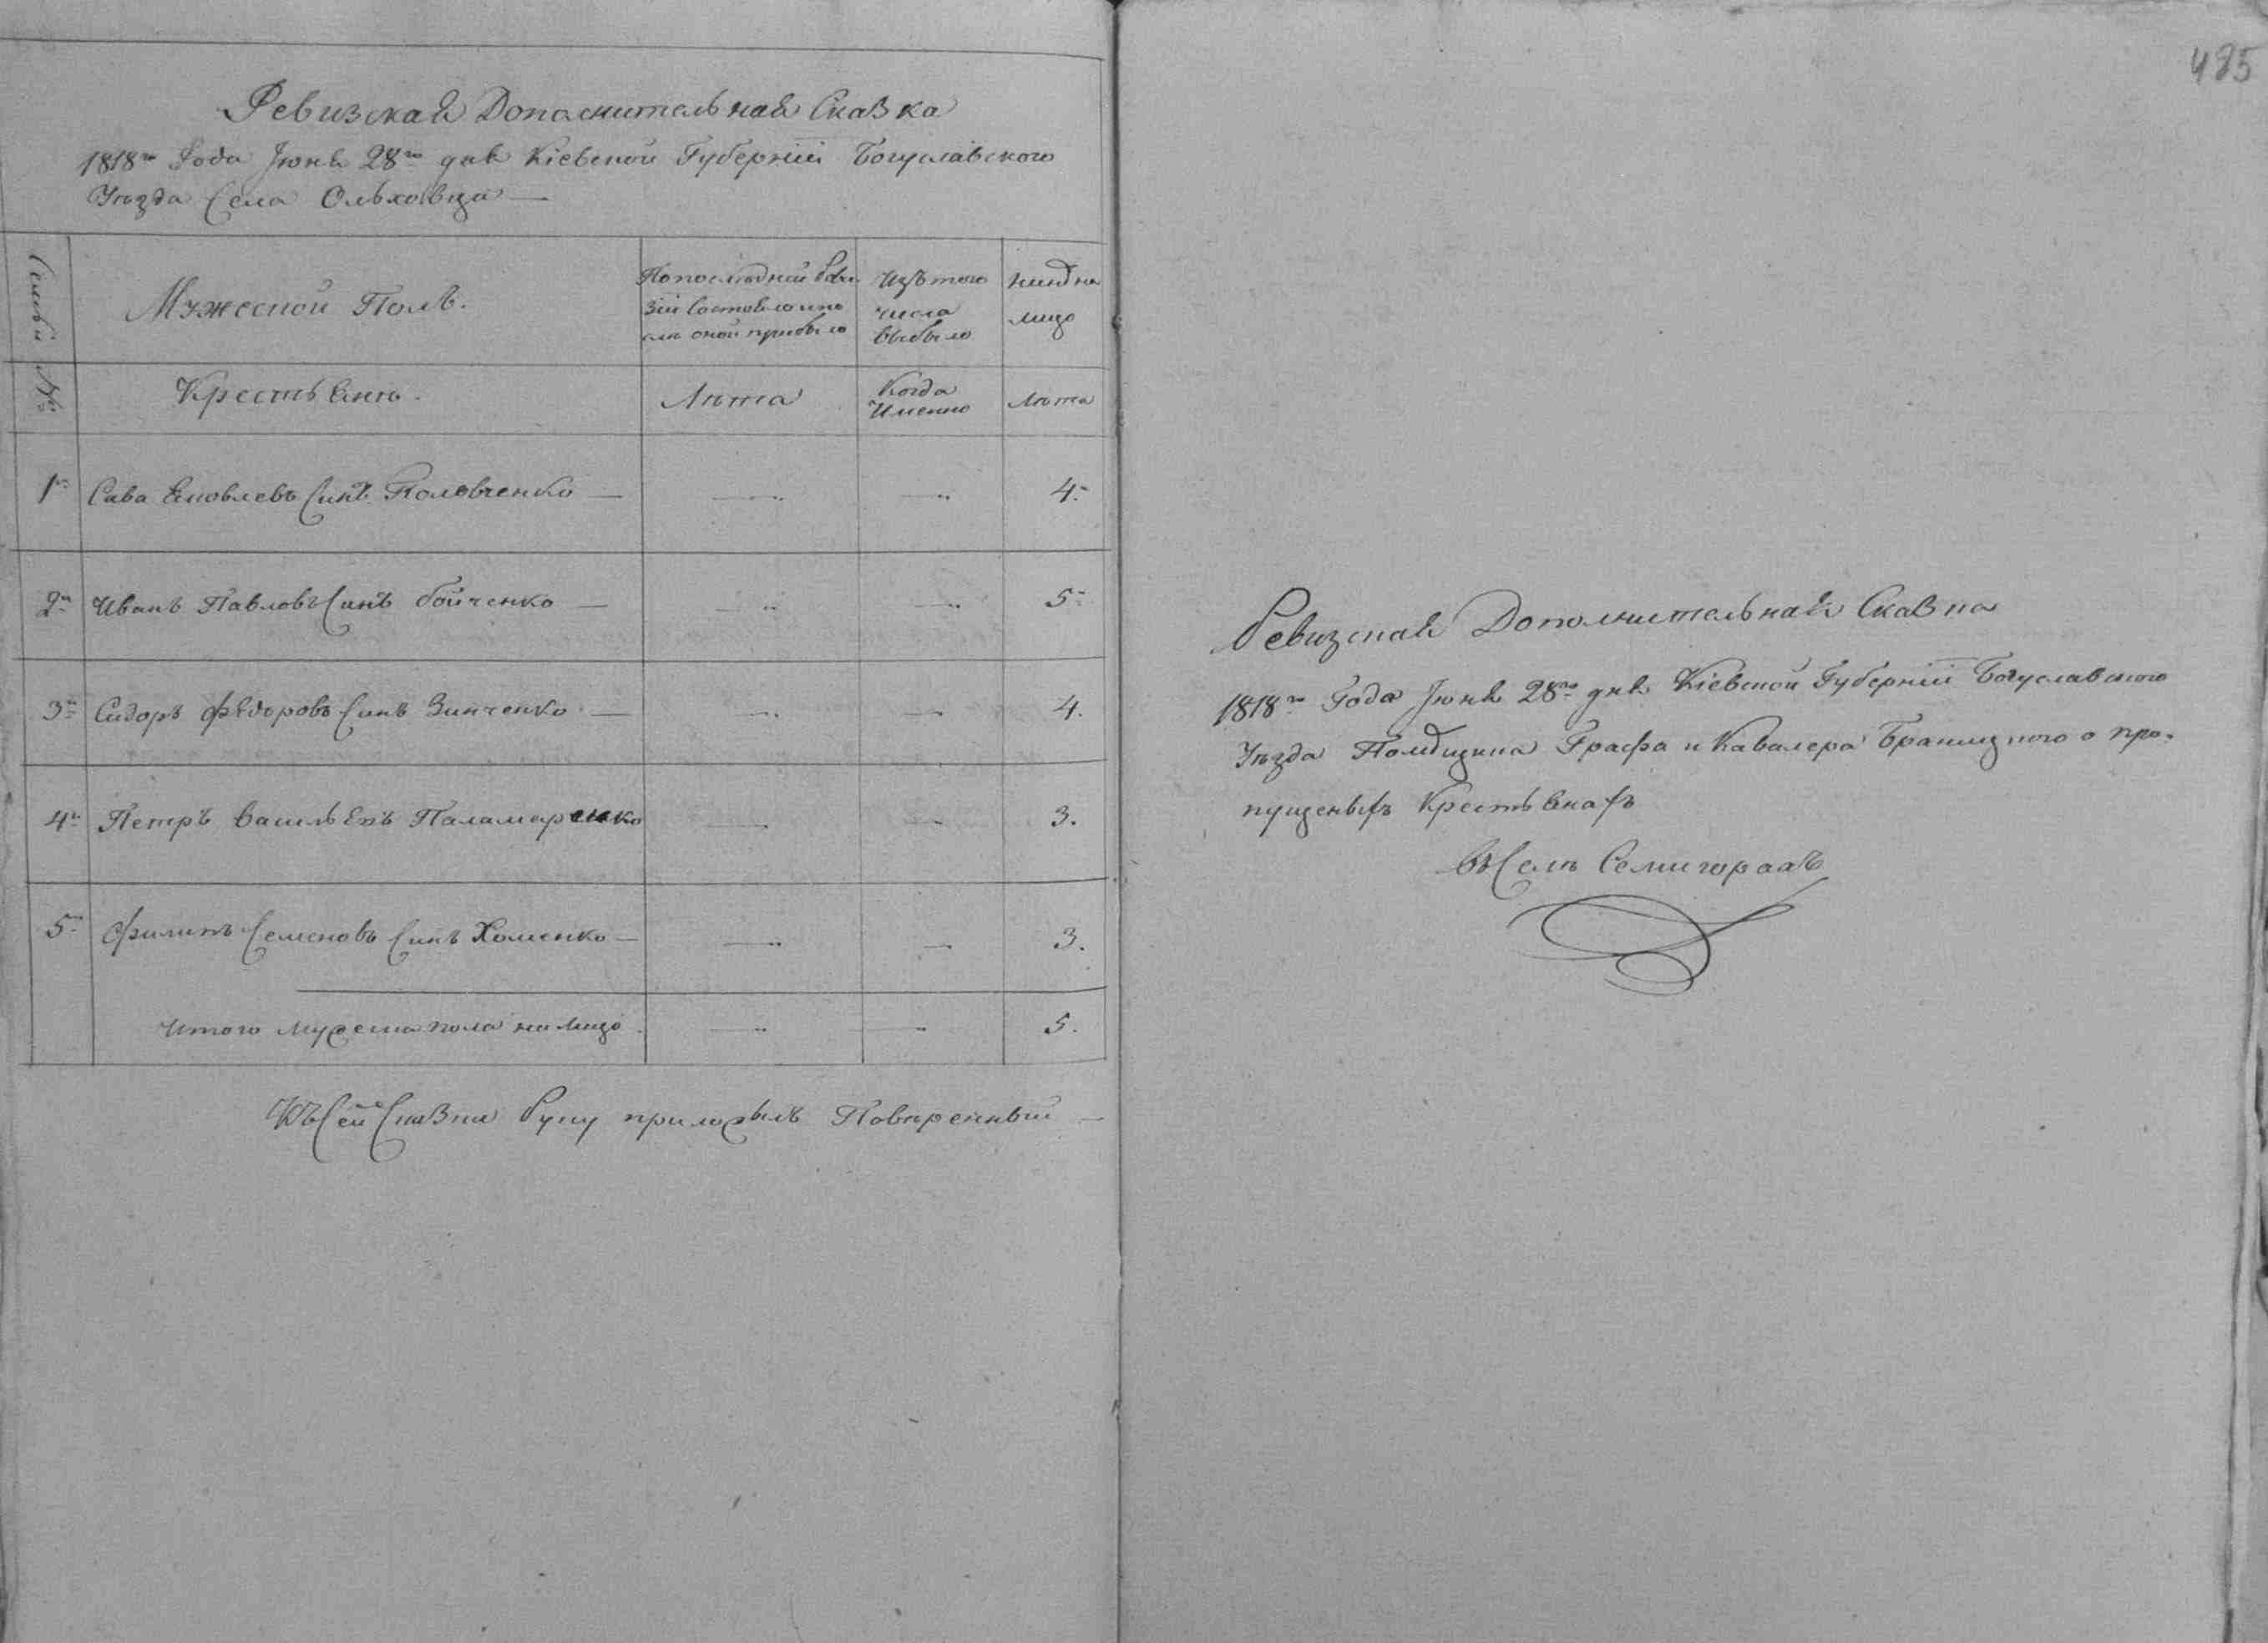 Ревизская Дополнительная Сказка
1818го Года Іюня 28го дня Кіевской Губерніи Богуславского
Уѣзда Села Ольховца —
Семьи
Мужеской Полъ.
По последней Реви-
зіи состояло и по
слѣ оной прибыло
Изъ того
числа
выбыло
Ныне на
лицо
№
Крестьянъ.
Лѣта
Когда
Именно
Лѣта
1й Сава Яковлевъ Синъ Половченко — 4.
2й Иванъ Павловъ Синъ Бойченко — 5.
3й Сидоръ Федоровъ Синъ Зинченко — 4.
4й Петръ Васильевъ Паламаренко 3.
5й Филипъ Семеновъ Синъ Хоменко — 3.
Итого мужеска пола на лицо 5.
Къ Сей Сказки Руку приложылъ Повѣренный —
485
Ревизская Дополнительная Сказка
1818го Года Іюня 28го дня Кіевской Губерніи Богуславского
Уѣзда Помещика Графа и Кавалера Браницкого о про-
пущеныхъ Крестьянахъ
въ Селѣ Семигорахъ